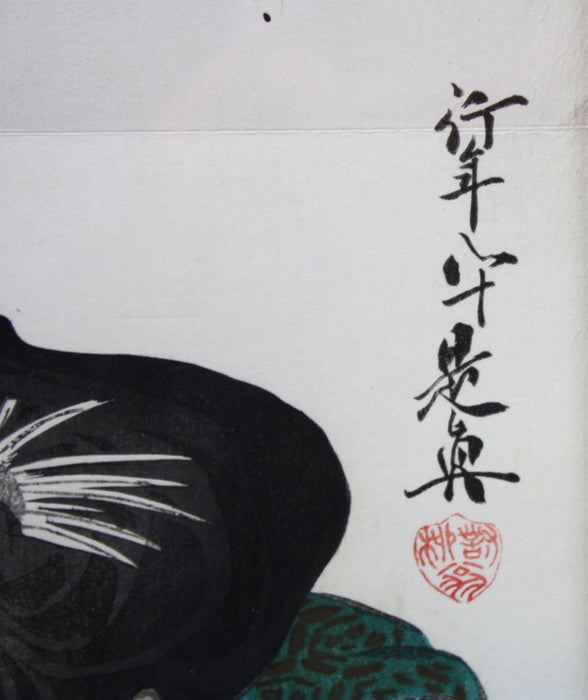 行年八十是眞